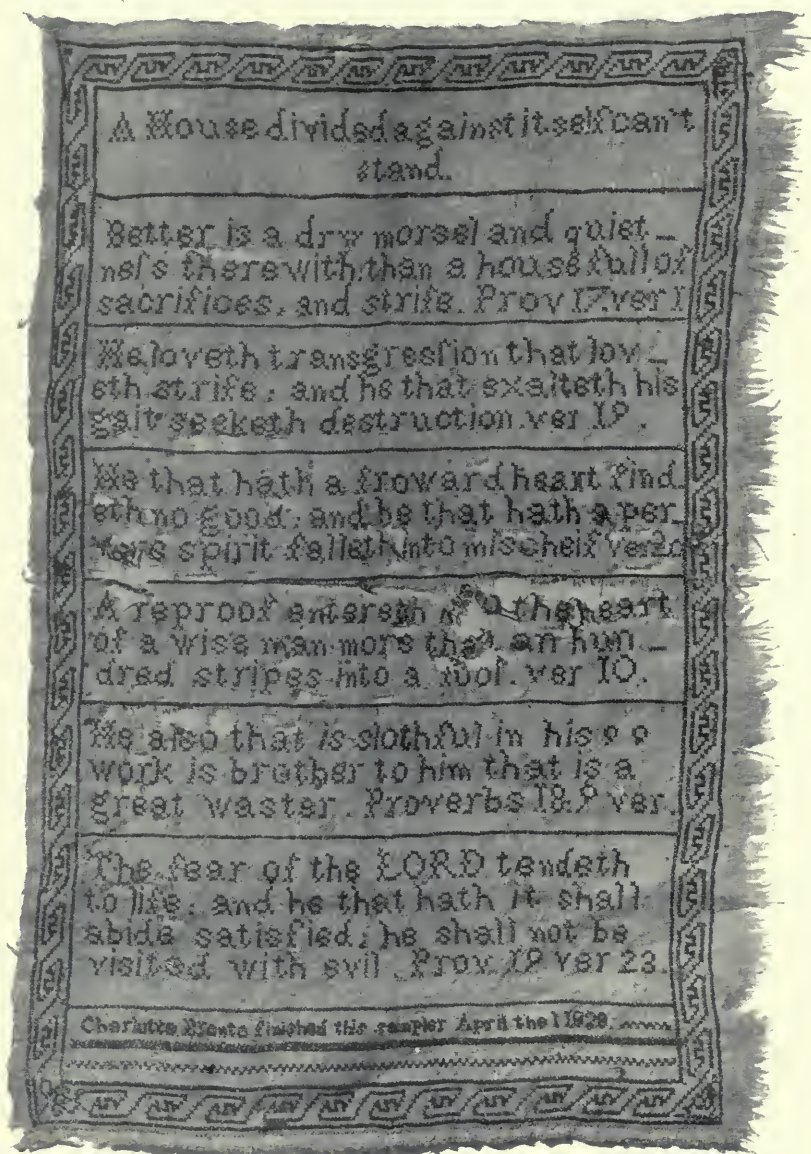 A House divided against itself can't
stand.
Better is a dry morsel and quiet_
neſs therewith; than a house full of
sacrifices, and strife. Prov 17 ver 1
He loveth transgreſsion that lov_
eth strife; and he that exalteth his
gait seeketh destruction. ver 19.
He that hath a froward heart find_
eth no good; and he that hath a per_
verse spirit falleth into mischeif ver 20
A reproof entereth the heart
of a wise man more than an hun_
dred stripes into a fool. ver 10.
He also that is slothful in his
work is brother to him that is a
great waster. Proverbs 18.9 ver.
The fear of the LORD tendeth
to life; and he that hath it shall
abide satisfied; he shall not be
visited with evil. Prov. 19 ver 23.
Charlotte Bronte finished this sampler April the 1 1829.